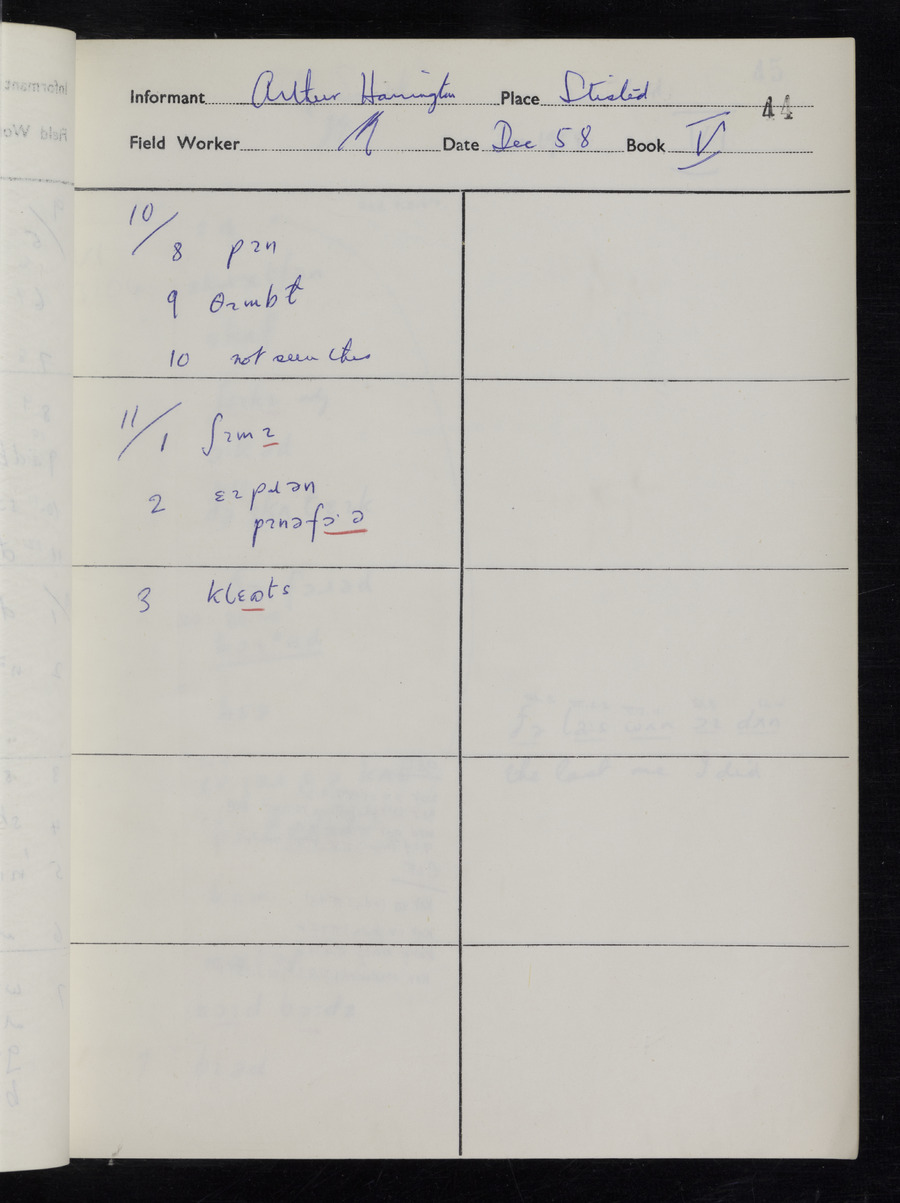 Informant Arthur Harrington Place Stisted 44
Field Worker Date Dec 58 Book V
10/
8 pɪn
9 θɪmbɫ
10 not seen this
11/
1 ʃɪmɪ
2 ɛɪpɹən
pɪnəfɔ·ə
3 klɛɷts